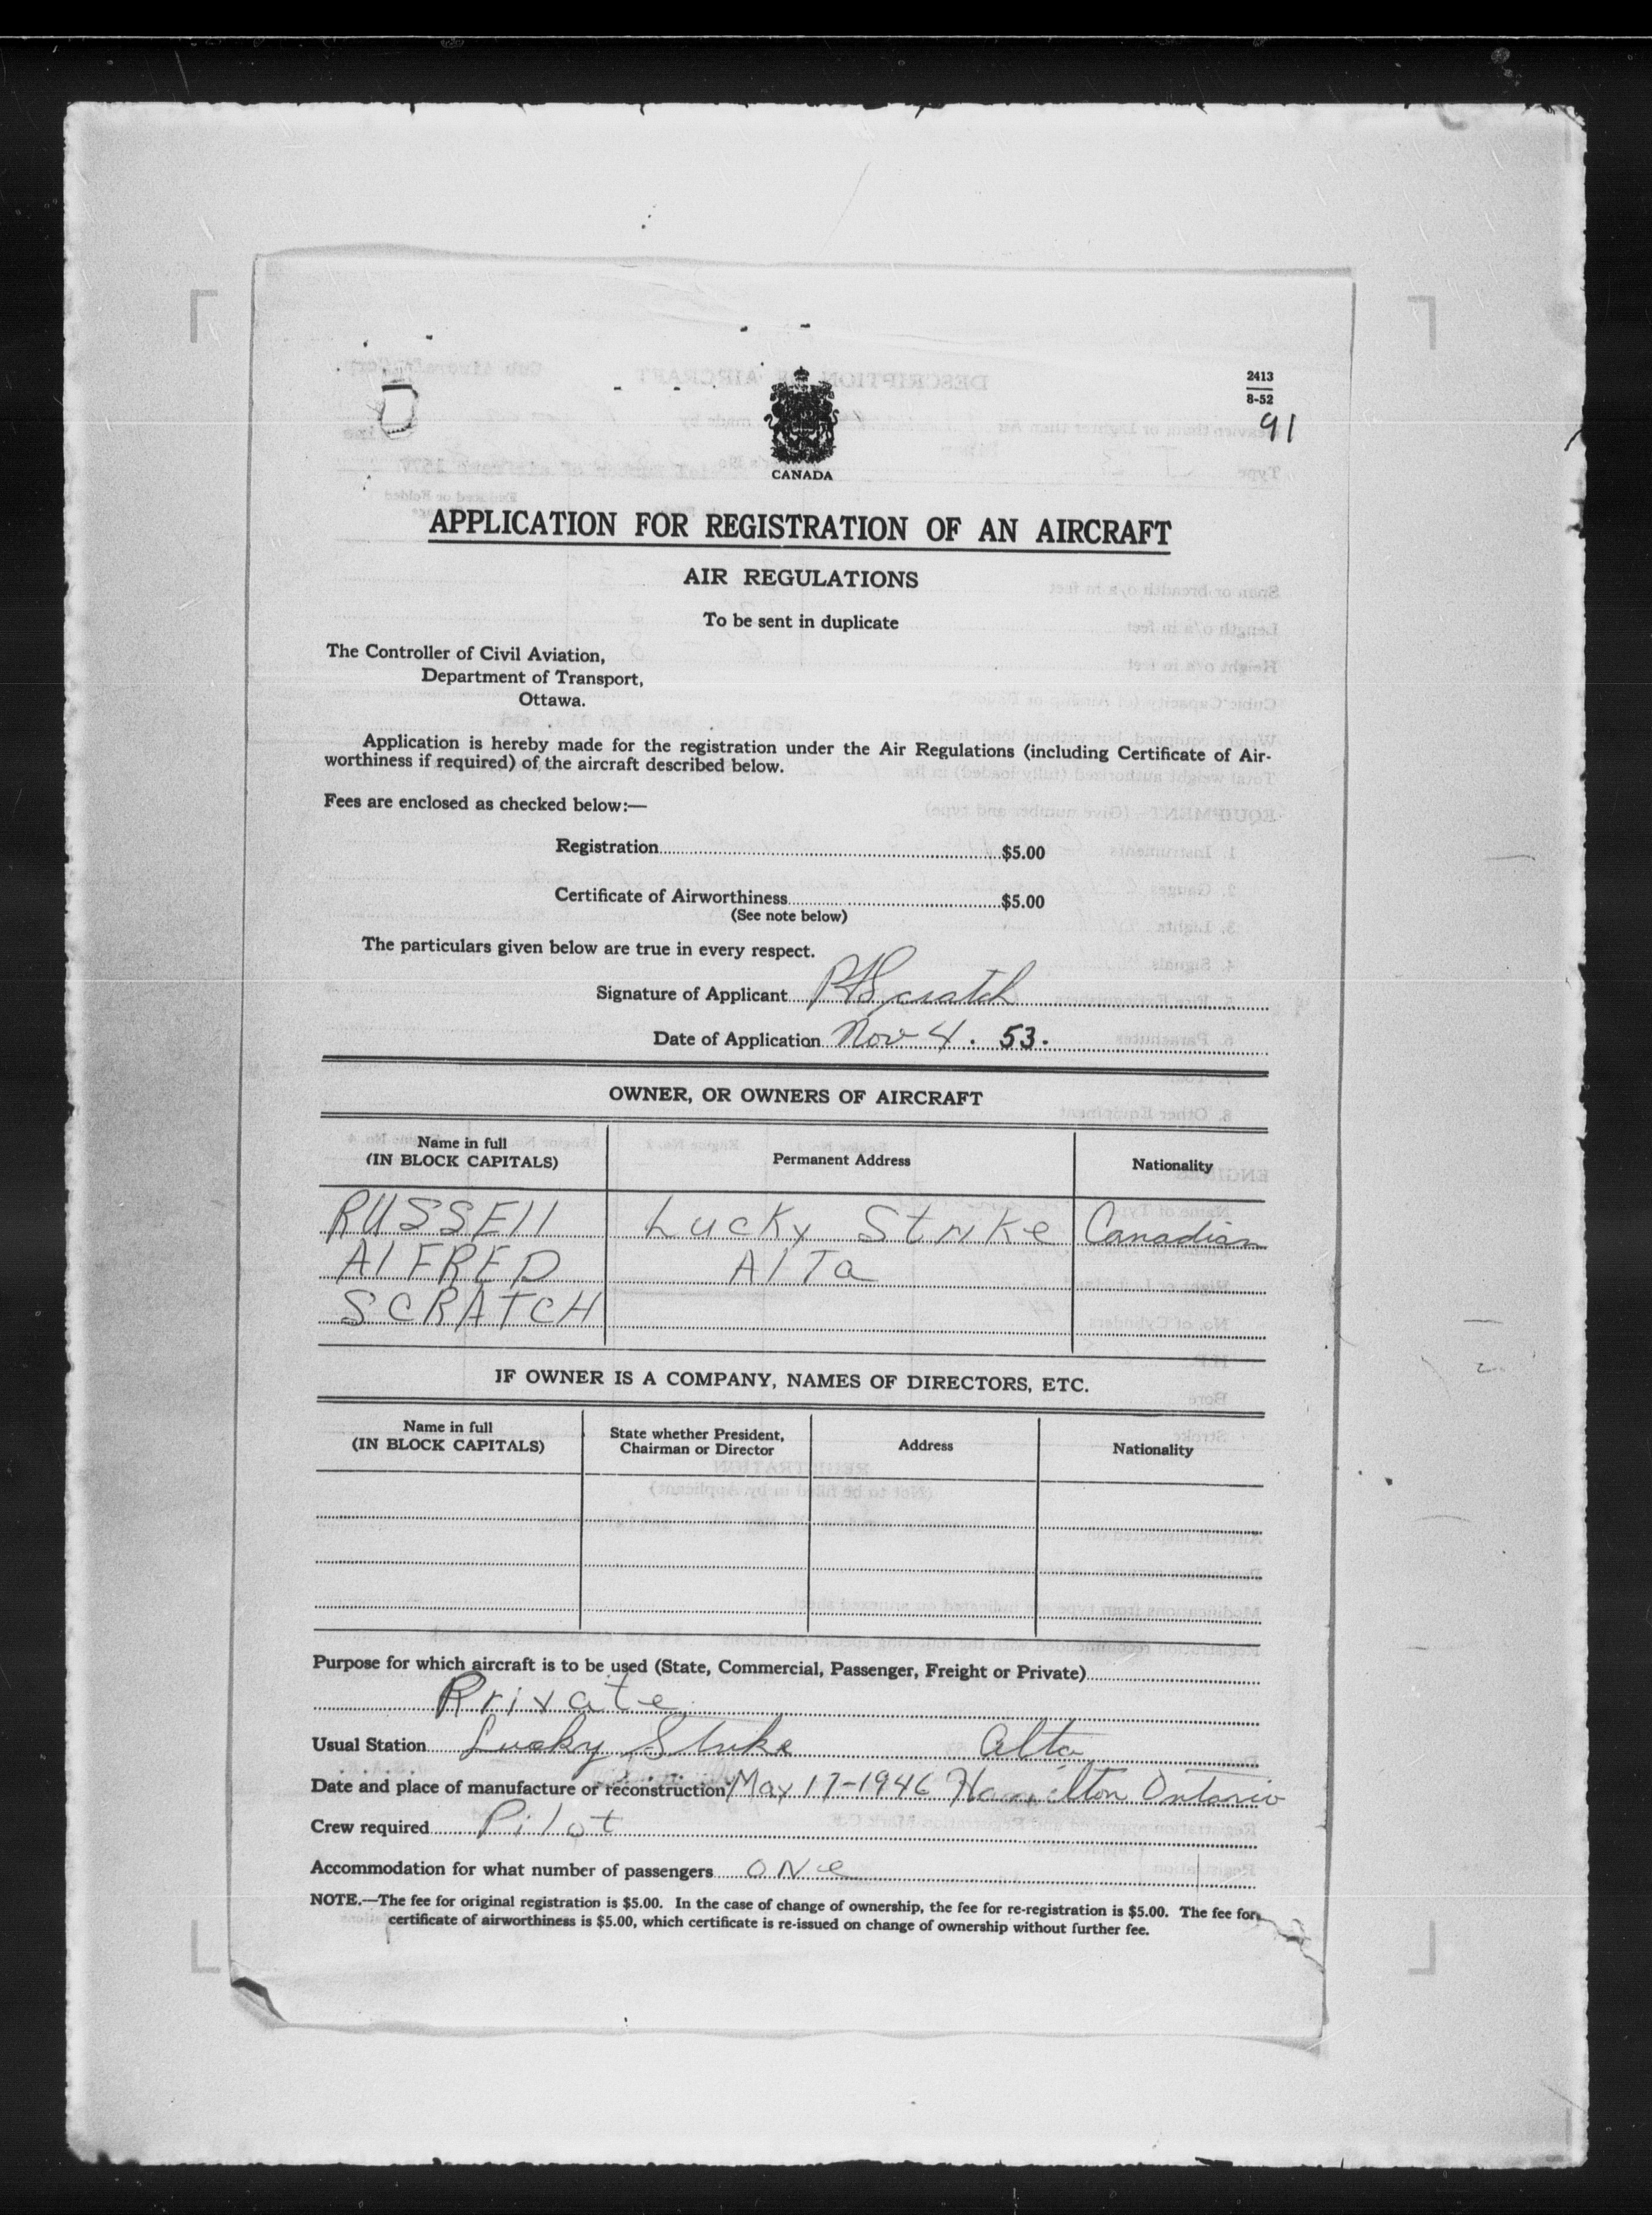 2413
8-52
91
CANADA
APPLICATION FOR REGISTRATION OF AN AIRCRAFT
AIR REGULATIONS
To be sent in duplicate
The Controller of Civil Aviation,
Department of Transport,
Ottawa.
Application is hereby made for the registration under the Air Regulations (including Certificate of Air-
worthiness if required) of the aircraft described below.
Fees are enclosed as checked below:—
Registration $5.00
Certificate of Airworthiness $5.00
(See note below)
The particulars given below are true in every respect.
Signature of Applicant RA Scratch
Date of Application Nov 4. 53.
OWNER, OR OWNERS OF AIRCRAFT
Name in full
(IN BLOCK CAPITALS)
Permanent Address
Nationality
RUSSEll Lucky Strike Canadian
AlFRED AlTa
SCRATCH
IF OWNER IS A COMPANY, NAMES OF DIRECTORS, ETC.
Name in full
(IN BLOCK CAPITALS)
State whether President,
Chairman or Director
Address
Nationality
Purpose for which aircraft is to be used (State, Commercial, Passenger, Freight or Private)
Private
Usual Station Lucky Strike Alta
Date and place of manufacture or reconstruction May 17-1946 Hamilton Ontario
Crew required Pilot
Accommodation for what number of passengers oNe
NOTE.—The fee for original registration is $5.00. In the case of change of ownership, the fee for re-registration is $5.00. The fee for
certificate of airworthiness is $5.00, which certificate is re-issued on change of ownership without further fee.